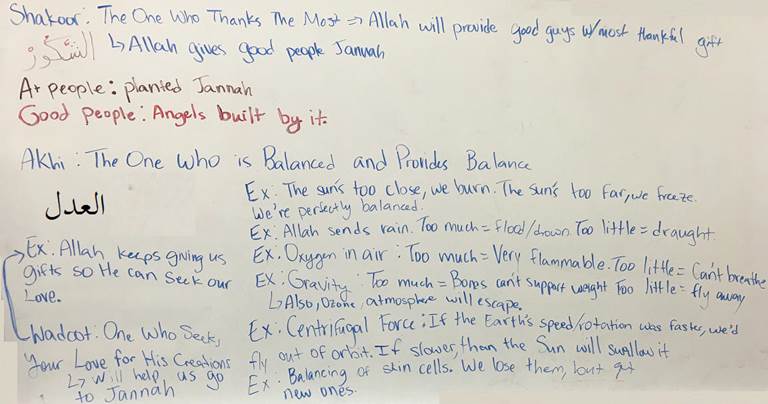 Shakoor: The One Who Thanks The Most => Allah will provide good guys w/most thankful gift
الشكور ↳ Allah gives good people Jannah
A+ people: planted Jannah
Good people: Angels built by it.
Akhi: The One Who is Balanced and Provides Balance
العدل
Ex: The sun's too close, we burn. The sun's too far, we freeze.
We're perfectly balanced.
Ex: Allah sends rain. Too much = flood/drown. Too little = draught.
Ex: Oxygen in air: Too much = Very flammable. Too little = Can't breathe
Ex: Gravity: Too much = Bones can't support weight Too little = fly away
↳ Also, Ozone, atmosphere will escape.
Ex: Centrifugal Force: If the Earth's speed/rotation was faster, we'd
fly out of orbit. If slower, than the Sun will swallow it
Ex: Balancing of skin cells. We lose them, but get
new ones.
→ Ex: Allah keeps giving us
gifts so He can seek our
Love.
Wadoot: One Who Seeks
Your Love for His Creations
↳ Will help us go
to Jannah